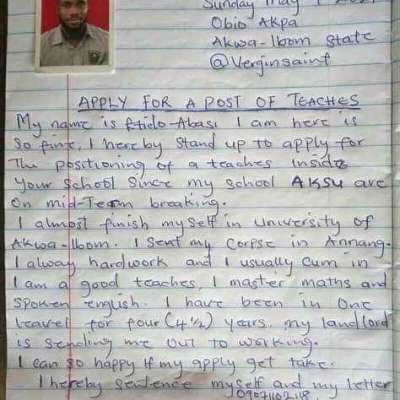 Sunday May
Obio Akpa
Akwa-Ibom State
@Verginsaint
APPLY FOR A POST OF TEACHES
My name is Etido-Abasi I am here is
So fine, I hereby stand up to apply for
The positioning of a teaches inside
Your School Since my school AKSU are
On mid-Team breaking.
I almost finish myself in University of
Akwa-Ibom. I sent my Corpse in Annang.
I alway hardwork and I usually cum in
I am a good teaches, I master maths and
Spoken english. I have been in One
Leavel for four (4½) years, my landlord
is sending me out to working.
I can so happy if my apply get take.
I hereby sentence myself and my letter